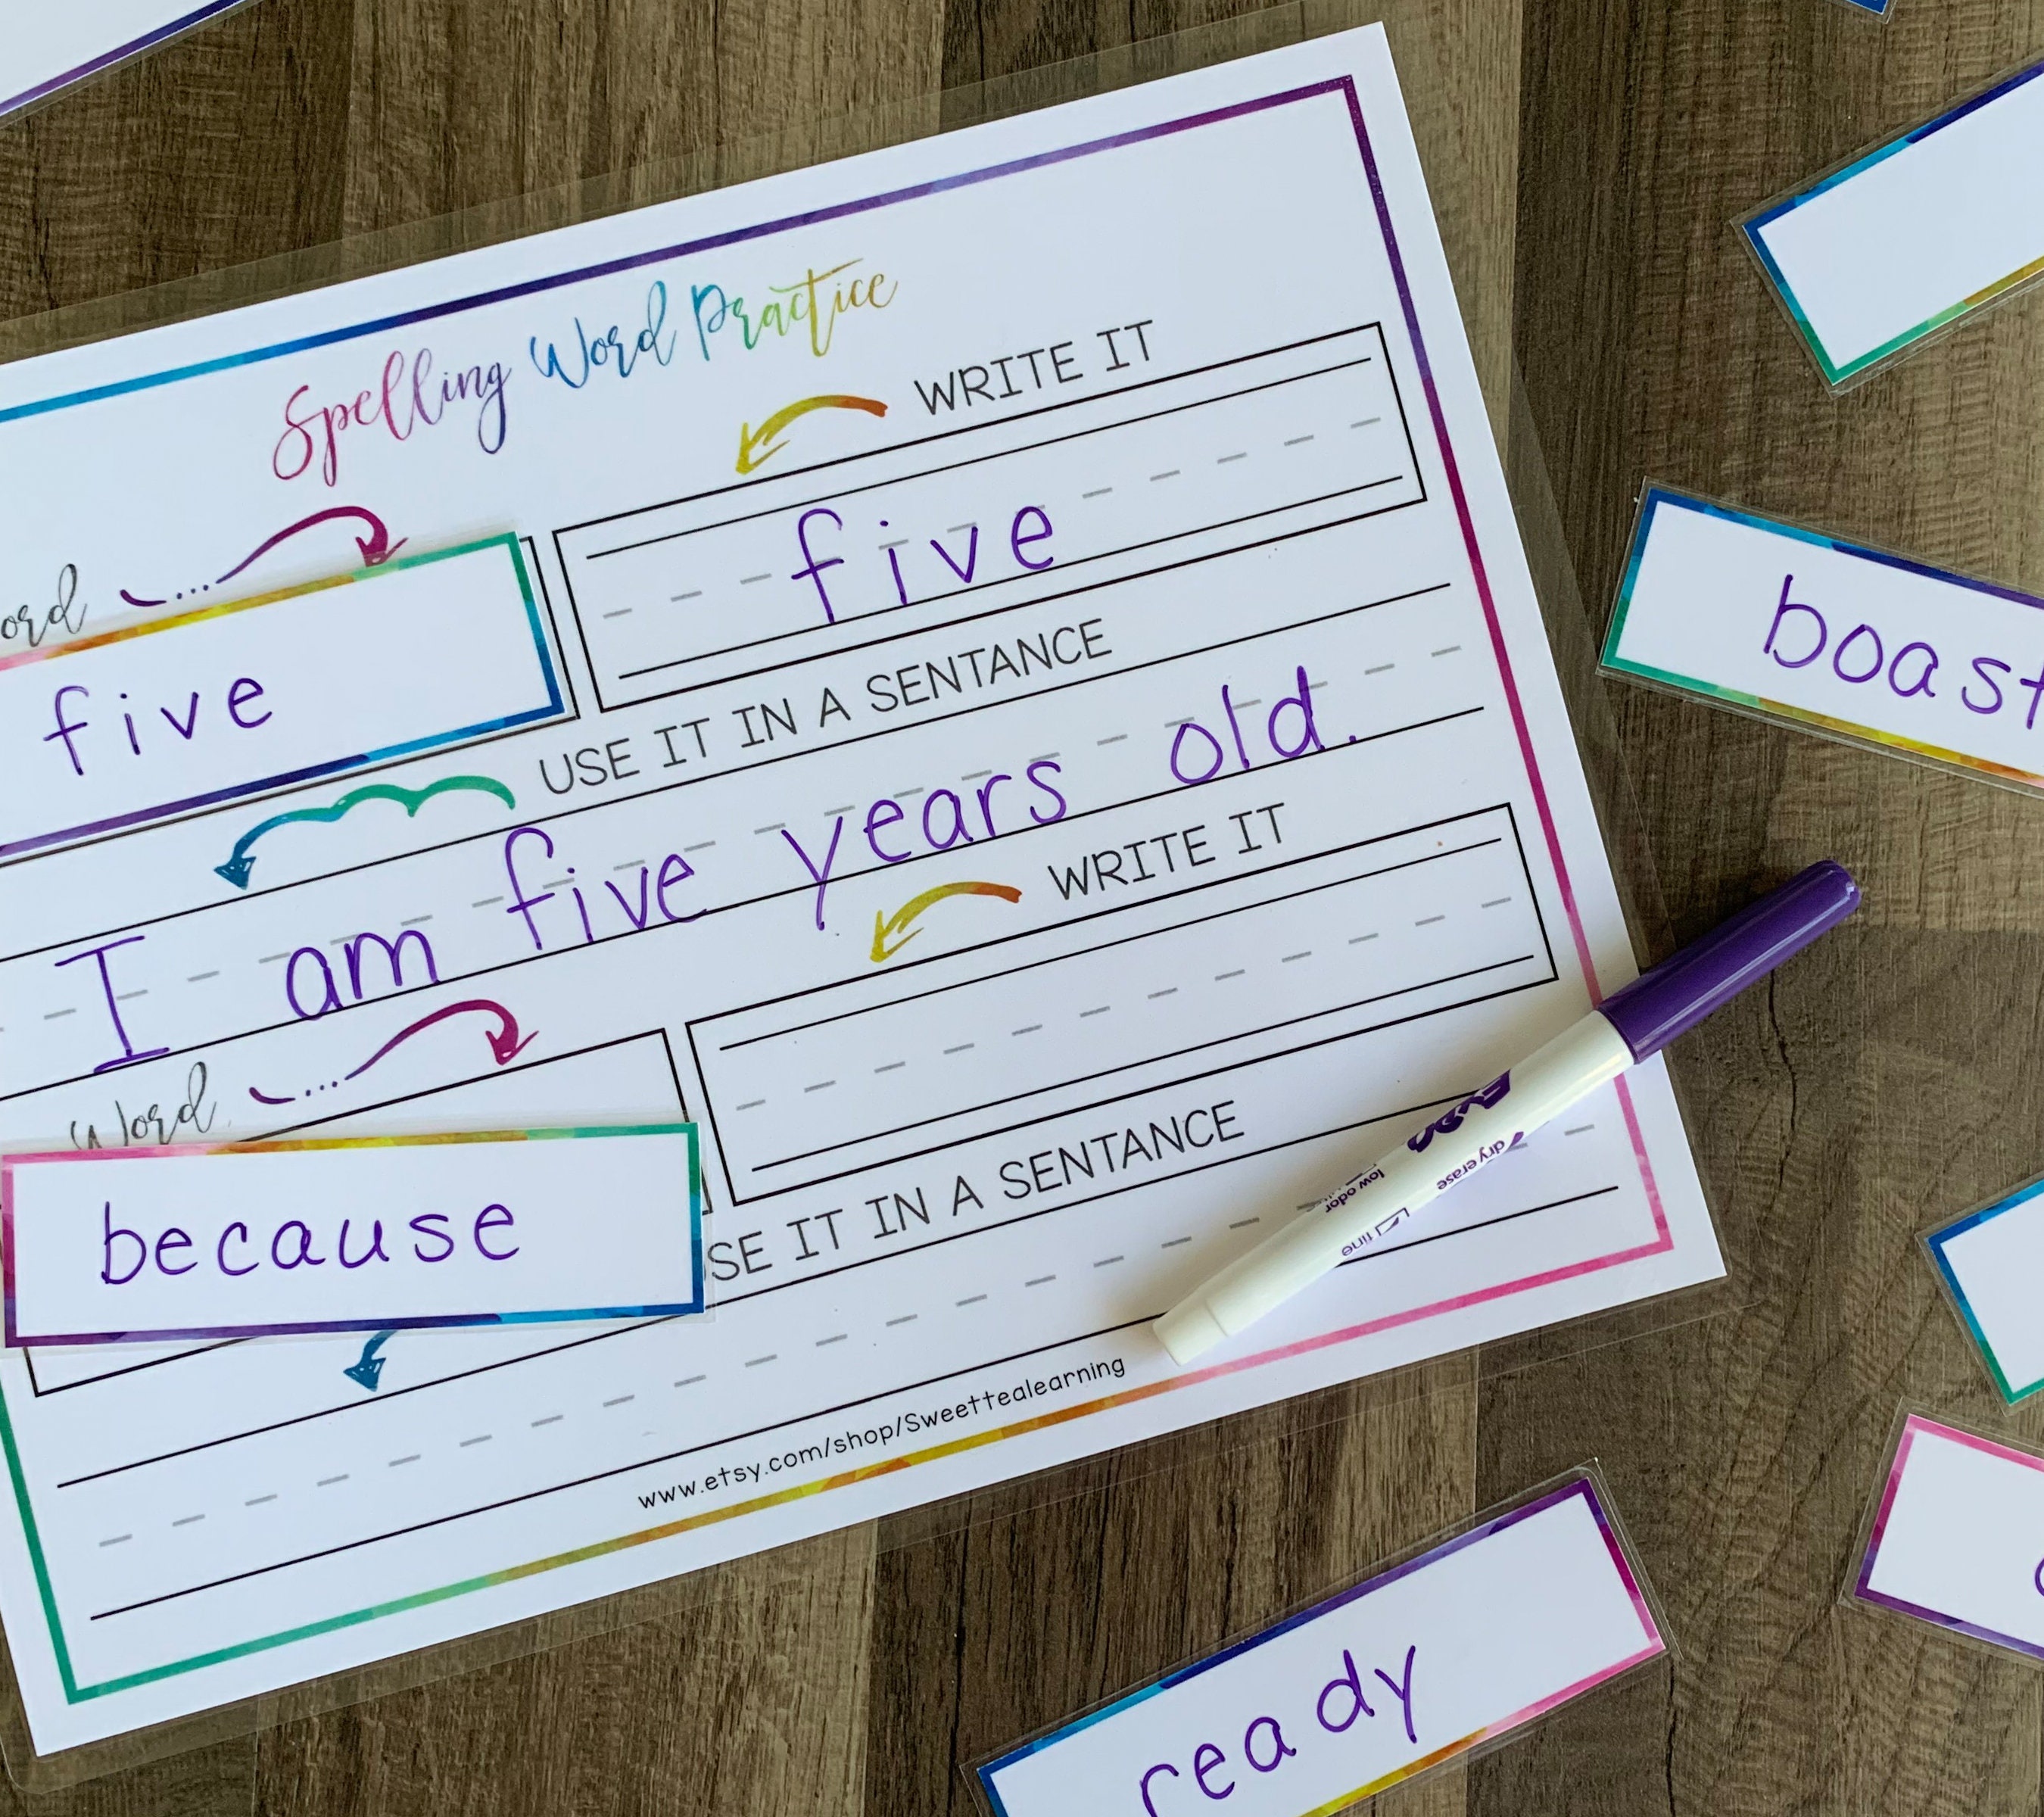 Spelling Word Practice
WRITE IT
five
five
USE IT IN A SENTANCE
I am five years old.
Word
WRITE IT
because
SE IT IN A SENTANCE
www.etsy.com/shop/Sweettealearning
Expo
dry erase
low odor
fine
boast
ready